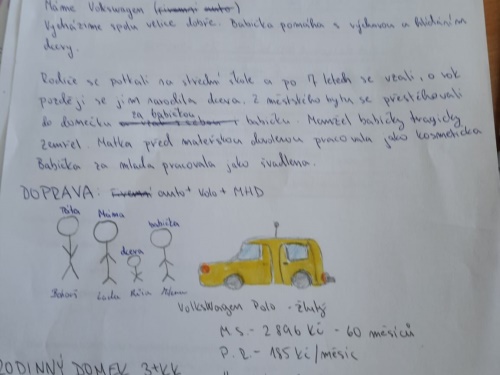 Máme Volkswagen (firemní auto)
Vycházíme spolu velice dobře. Babička pomáhá s výchovou a hlídáním
dcery.
Rodiče se potkali na střední škole a po 17 letech se vzali, o rok
později se jim narodila dcera. Z městského bytu se přestěhovali
za babičkou.
do domečku babičku. Manžel babičky tragicky
zemřel. Matka před mateřskou dovolenou pracovala jako kosmetička
Babička za mlada pracovala jako švadlena.
DOPRAVA: Firemní auto + kolo + MHD
Táta Máma dcera babička
Lada
Volkswagen Polo - žlutý
M.S. - 2 896 Kč - 60 měsíců
P.Z. - 185 Kč/měsíc
RODINNÝ DOMEK 3+KK